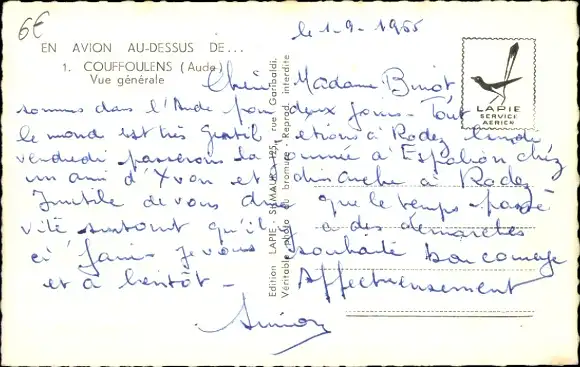 6€
le 1-9-1965
EN AVION AU-DESSUS DE...
1. COUFFOULENS (Aude)
Vue générale
LAPIE
SERVICE
AÉRIEN
Chère Madame Binot
sommes dans l'Aude pour deux jours - Tout
le monde est très gentil etions à Rodez lundi
vendredi passerons la journée à Espalion chez
un ami d'Yvon et dimanche à Rodez
Inutile de vous dire que le temps passe
vite surtout qu'il y a des démarches
à faire je vous souhaite bon courage
et à bientôt - Affectueusement
Edition LAPIE - St-MAUR, 125, rue Garibaldi.
Véritable photo au bromure - Reprod. interdite